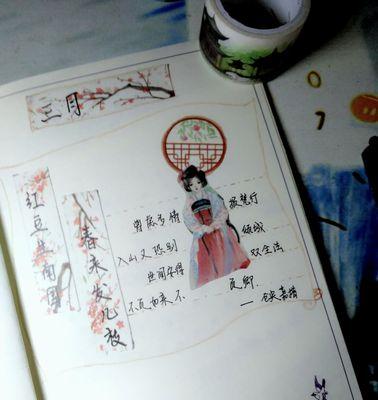 三月
红豆生南国
春来发几枝
曾虑多情 损梵行
入山又恐别 倾城
世间安得 双全法
不负如来不 负卿.
— 仓央嘉措